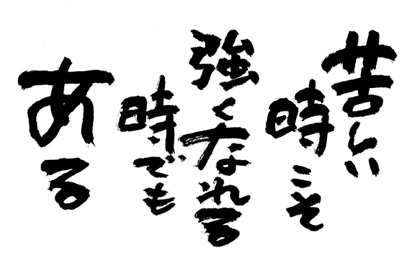 苦しい
時こそ
強くなれる
時でも
ある